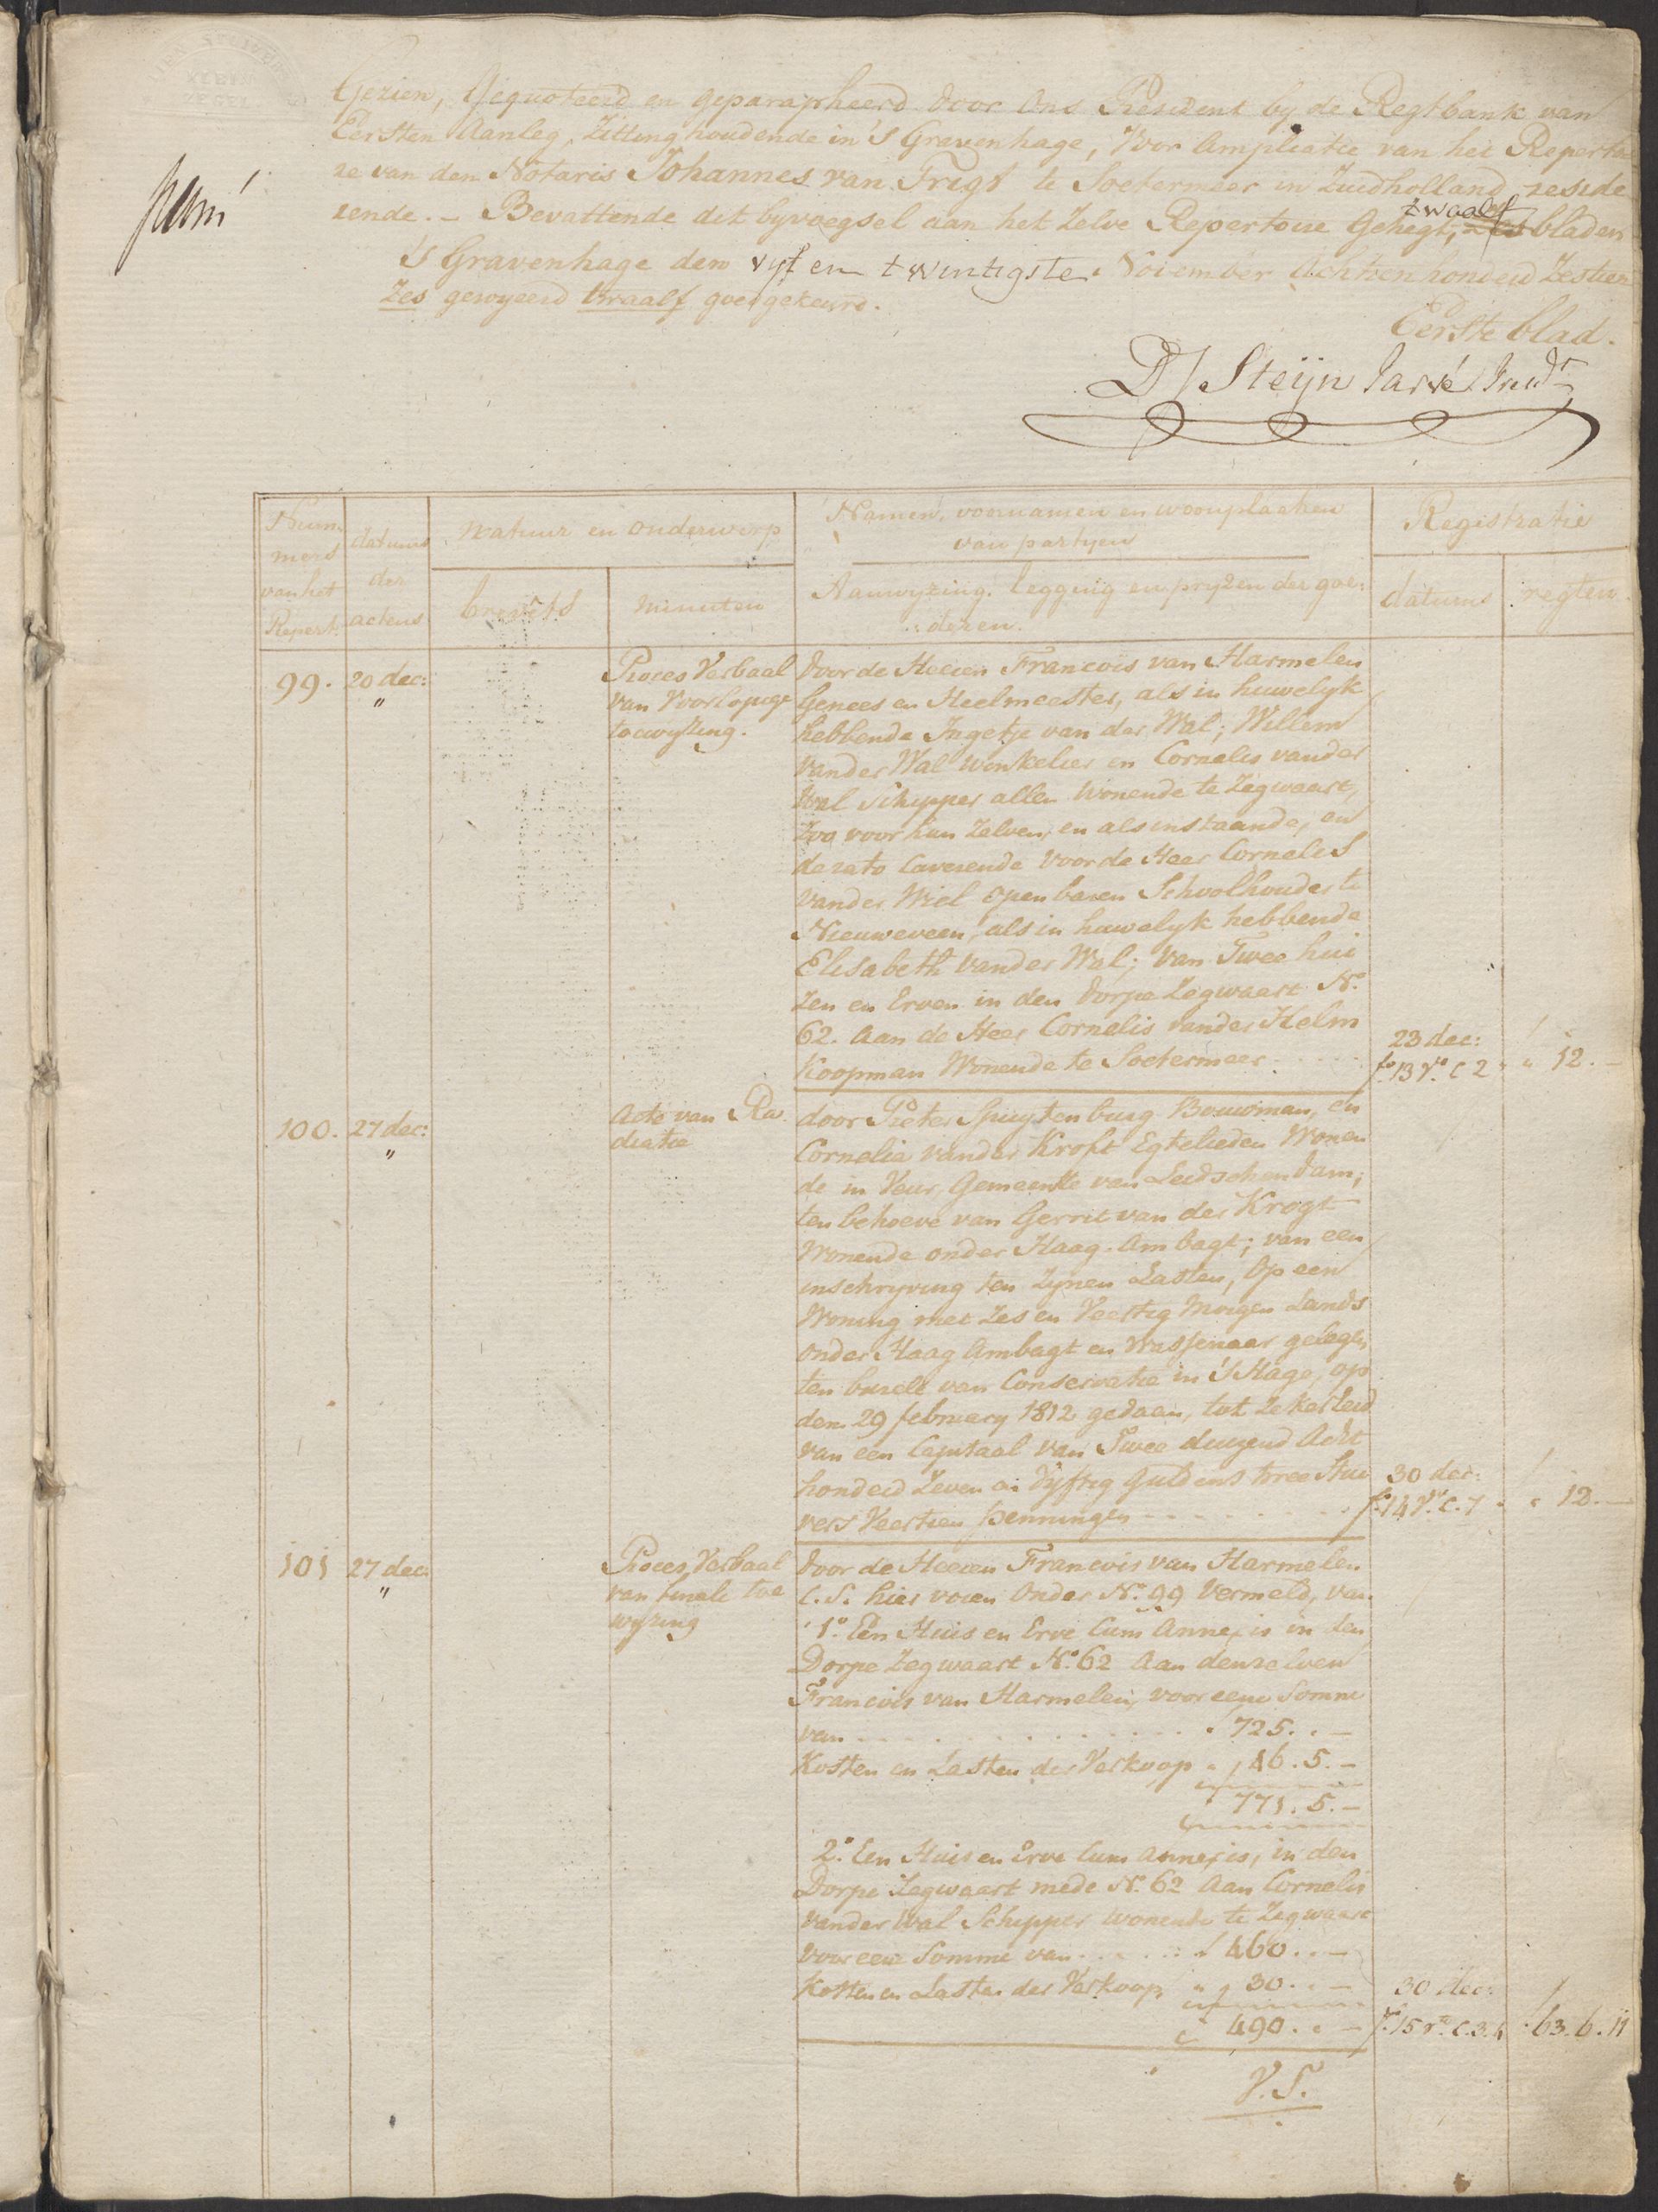 Gezien, Gequoteerd en geparapheerd door Ons President by de Regtbank van
Eersten Aanleg, Zitting houdende in 's Gravenhage, Voor Ampliatie van het Repertoi
re van den Notaris Johannes van Trigt te Soetermeer in Zuidholland reside
rende. - Bevattende dit byvoegsel aan het Zelve Repertoire Gehegt, zes bladen
twaalf
's Gravenhage den vyf en twintigste November Achtien honderd Zestien
Zes geroyeerd twaalf goedgekeurd.
Eerste blad.
D J Steijn Parvé Presdt
Num
mers
van het
Repert:
datums
der
actens
Natuur en onderwerp
brevets
minuten
Namen, voornamen en woonplaatsen
van partyen
Aanwyzing, legging en pryzen der goe:
deren.
Registratie
datums
regten.
99. 20 dec:
"
Proces Verbaal
van Voorlopige
toewyzing.
Door de Heeren Francois van Harmelen
Genees en Heelmeester, als in huwelyk
hebbende Ingetje van der Wal; Willem
vander Wal winkelier en Cornelis vander
Wal Schipper allen wonende te Zegwaart,
Zoo voor hun Zelven, en als instaande, en
de rato caverende voor de Heer Cornelis
vander Wiel openbaren Schoolhouder te
Nieuweveen, als in huwelyk hebbende
Elisabeth vander Wal; van Twee hui
zen en Erven in den Dorpe Zegwaart No.
62. aan de Heer Cornelis vander Helm
Koopman Wonende te Soetermeer
23 dec:
fo 13 Vo. C 2
" 12. -
100. 27 dec:
"
Acte van Ra
diatie
door Pieter Spuytenburg Bouwman, en
Cornelia vander Kroft Egtelieden Wonen
de in Veur, Gemeente van Leidschendam;
ten behoeve van Gerrit van der Krogt
Wonende onder Haag-Ambagt; van een
inschryving ten Zynen Lasten, Op een
Woning met Zes en Veertig Morgen Lands
onder Haag Ambagt en Wassenaar gelegen
ten burele van Conservatie in 's Hage, op
den 29 february 1812 gedaan, tot Zekerheid
van een Capitaal van Twee duizend Acht
honderd Zeven en Vyftig Guldens twee Stui
vers Veertien penningen
30 dec:
fo 14 Vo. C. 7
" 12. -
101 27 dec.
"
Proces Verbaal
van finale toe
wyzing
Door de Heeren Francois van Harmelen
C. S. hier voren Onder No. 99 Vermeld, van.
1o. Een Huis en Erve Cum Annexis in den
Dorpe Zegwaart No. 62 Aan denzelven
Francois van Harmelen, voor eene Somme
van 725. . -
Kosten en Lasten der Verkoop " 46. 5. -
771. 5. -
2o. Een Huis en Erve Cum annexis, in den
Dorpe Zegwaart mede No. 62 Aan Cornelis
vander Wal Schipper wonende te Zegwaart
Voor eene Somme van 460. . -
Kosten en Lasten der Verkoop " 30. . -
490. . -
30 dec:
fo 15 ro. C. 3. 4
63. 6. 11
V. S.